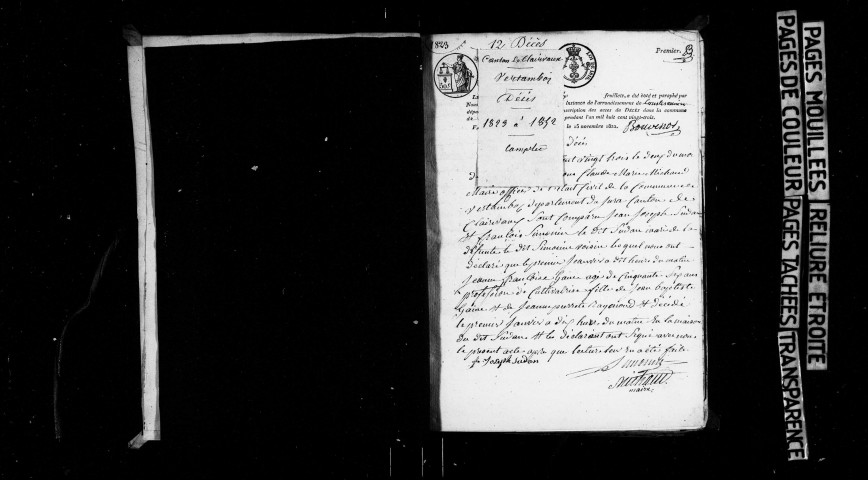 1823
12 Décès
Canton de Clairvaux
Vertamboz
Décès
1823 à 1852
Complet
Premier.
feuillets, a été coté et paraphé par
instance de l'arrondissement de
scription des actes de Décès dans la commune
pendant l'an mil huit cent vingt-trois.
le 15 novembre 1822. Bouvenot
vingt trois le deux du mois
Claude Marie Michaud
Maire officier de l'Etat Civil de la Commune de
Vertamboz département du Jura Canton de
Clairvaux Sont Comparu Jean Joseph Sudan
et françois Simonin le dit Sudan mari de la
défunte le dit Simonin voisin lequel nous ont
déclaré que le premier Janvier a dix heure du matin
Jeanne françoise Game agé de Cinquante Six ans
profession de Cultivatrice fille de Jean baptiste
Game et de Jeanne pierrette Raymond et décédé
le premier Janvier a dix heure du matin En la maison
du dit Sudan et les déclarant ont Signé avec nous
le présent acte après que lecture leur En a été faite
j. Joseph Sudan
Simonin
Michaud
maire
PAGES MOUILLEES RELIURE ETROITE
PAGES DE COULEUR PAGES TACHEES TRANSPARENCE